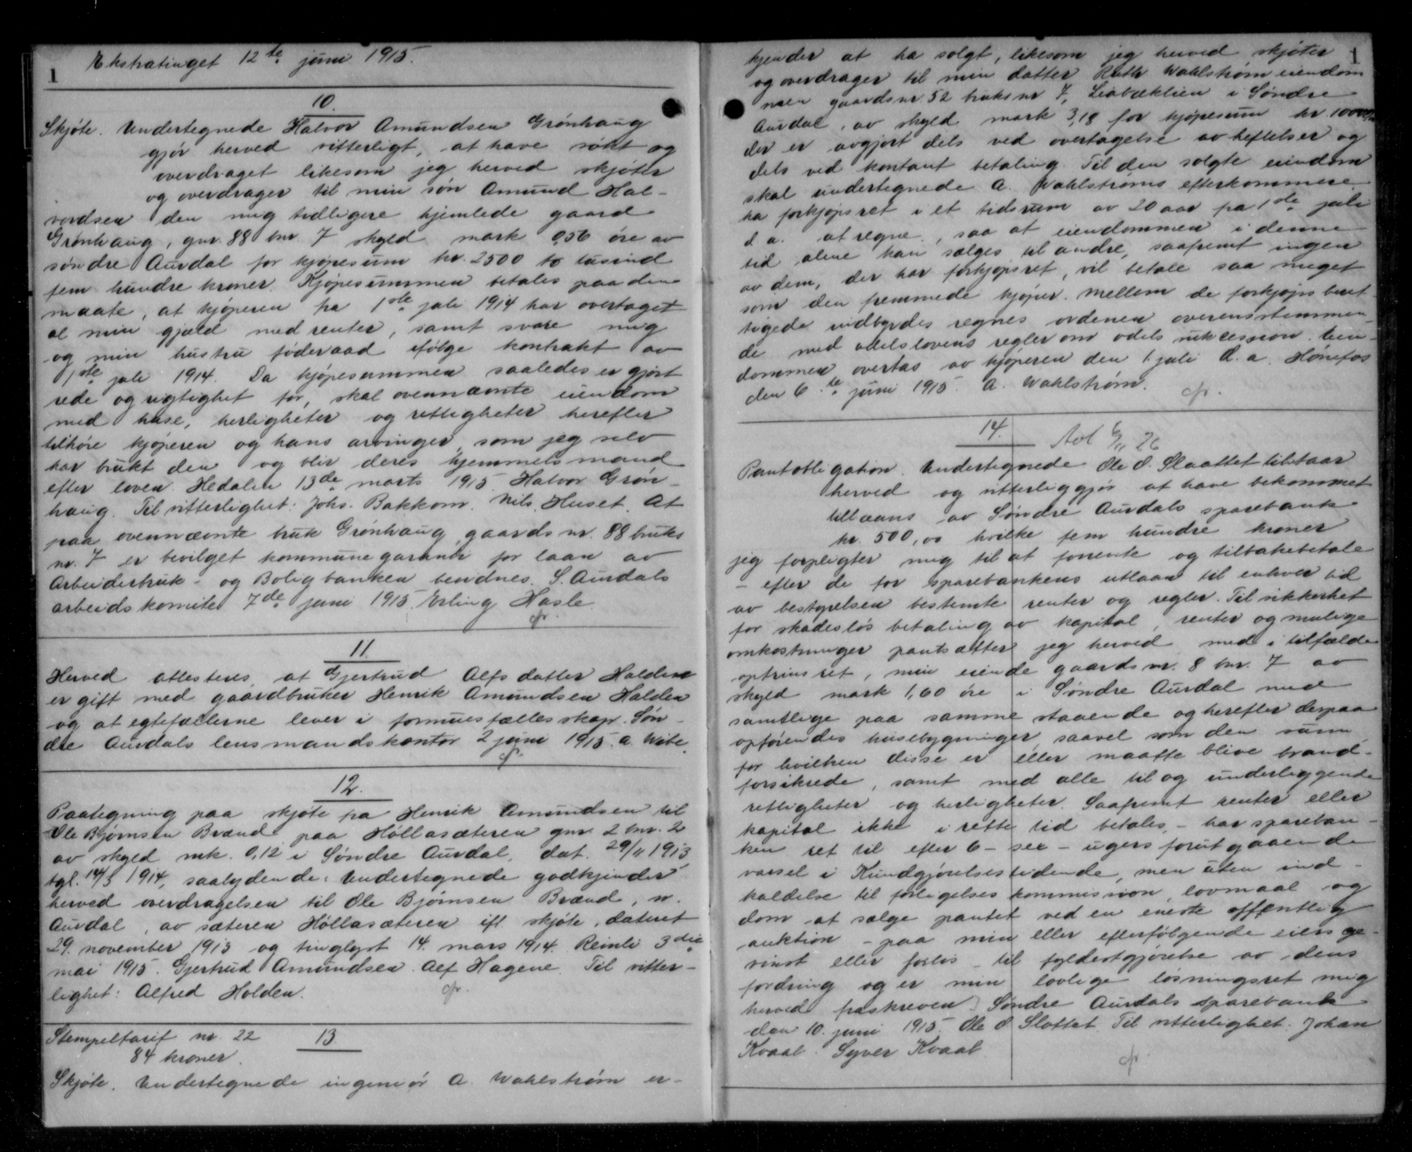 Ekstratinget 12te juni 1915.
1
10.
Skjøte. Undertegnede Halvor Amundsen Grønhaug
gjør herved vitterligt, at have solgt og
overdraget likesom jeg herved skjøter
og overdrager til min søn Amund Hal-
vordsen den mig tidligere hjemlede gaard
Grønhaug, gnr. 88 bnr. 7 skyld mark 0,56 øre av
søndre Aurdal for kjøpesum kr. 2500 to tusind
fem hundre kroner. Kjøpesummen betales paa den
maate, at kjøperen fra 1ste juli 1914 har overtaget
al min gjæld med renter, samt svare mig
og min hustru føderaad ifølge kontrakt av
1ste juli 1914. Da kjøpesummen saaledes er gjort
rede og rigtighet for, skal ovennævnte eiendom
med huse, herligheter og rettigheter herefter
tilhøre kjøperen og hans arvinger, som jeg selv
har brukt den og blir deres hjemmelsmand
efter loven. Hedalen 13de marts 1915 Halvor Grøn-
haug. Til vitterlighet: Johs. Bakkom. Nils Huset. At
paa ovennævnte bruk Grønhaug, gaardsnr. 88 bruks
nr. 7 er bevilget kommunegaranti for laan av
Arbeiderbruk- og Boligbanken bevidnes. S. Aurdals
arbeidskomite 7de juni 1915. Erling Hasle.
11.
Herved attesteres, at Gjertrud Alfsdatter Halden
er gift med gaardbruker Henrik Amundsen Halden
og at egtefællerne lever i formuesfællesskap. Søn-
dre Aurdals lensmandskontor 2 juni 1915. A. Wibe.
12.
Paategning paa skjøte fra Henrik Amundsen til
Ole Bjørnsen Brænd paa Høllasæteren gnr. 2 bnr. 2
av skyld mk. 0,12 i Søndre Aurdal, dat. 29/11 1913
tgl. 14/3 1914, saalydende: Undertegnede godkjender
herved overdragelsen til Ole Bjørnsen Brænd, n.
Aurdal, av sæteren Høllasæteren ifl skjøte, dateret
29. november 1913 og tinglyst 14. mars 1914. Reinli 3die
mai 1915. Gjertrud Amundsen. Alf Hagene. Til vitter-
lighet: Alfred Holden.
Stempeltarif nr. 22
84 kroner.
13
Skjøte. Undertegnede ingeniør A. Wahlstrøm er-
1
kjender at ha solgt, likesom jeg herved skjøter
og overdrager til min datter Ruth Wahlstrøm eiendom
men gaardsnr. 52 bruksnr 7, Leabæklien i Søndre
Aurdal, av skyld mark 3,18 for kjøpesum kr. 10000,
der er avgjort dels ved overtagelse av heftelser og
dels ved kontant betaling. Til den solgte eiendom
skal undertegnede A. Wahlstrøms efterkommere
ha forkjøpsret i et tidsrum av 20 aar fra 1ste juli
d. a. at regne, saa at eiendommen i denne
tid alene kan sælges til andre, saafremt ingen
av dem, der har forkjøpsret, vil betale saa meget
som den fremmede kjøper. Mellem de forkjøpsberet
tigede indbyrdes regnes ordenen overensstemmen-
de med odelslovens regler om odels suksession. Eien-
dommen overtas av kjøperen den 1. juli d. a. Hønefos
den 6te juni 1915. A. Wahlstrøm.
14.
Avl 6/11 26
Pantobligation. Undertegnede Ole O. Slaattet tilstaar
herved og vitterliggjør at have bekommet
tillaans av Søndre Aurdals sparebank
kr. 500,00 hvilke fem hundre kroner
jeg forpligter mig til at forrente og tilbakebetale
- efter de for sparebankens utlaan til enhver tid
av bestyrelsen bestemte renter og regler. Til sikkerhet
for skadesløs betaling av kapital, renter og mulige
omkostninger pantsætter jeg herved med i tilfælde
optrinsret, min eiende gaardsnr. 8 bnr. 7 av
skyld mark 1,60 øre i Søndre Aurdal med
samtlige paa samme staaende og herefter derpaa
opførendes husebygninger saavel som den sum
for hvilken disse er eller maatte blive brand-
forsikrede, samt med alle til og underliggende
rettigheter og herligheter. Saafremt renter eller
kapital ikke i rette tid betales, - har sparebar-
ken ret til efter 6 - sex - ugers forutgaaende
varsel i Kundgjørelsestidende, men uten ind-
kaldelse til forligelseskommission, lovmaal og
dom at sælge pantet ved en eneste offentlig
auktion - paa min eller efterfølgende eiers ge-
vinst eller forlis - til fyldestgjørelse av dens
fordring og er min lovlige løsningsret mig
herved fraskreven. Søndre Aurdals sparebank
den 10. juni 1915. Ole O Slottet. Til vitterlighet: Johan
Kvaal. Syver Kvaal